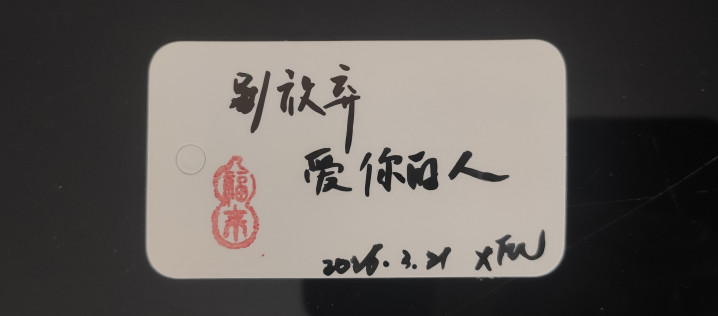 别放弃
爱你的人
福来
2026.3.21